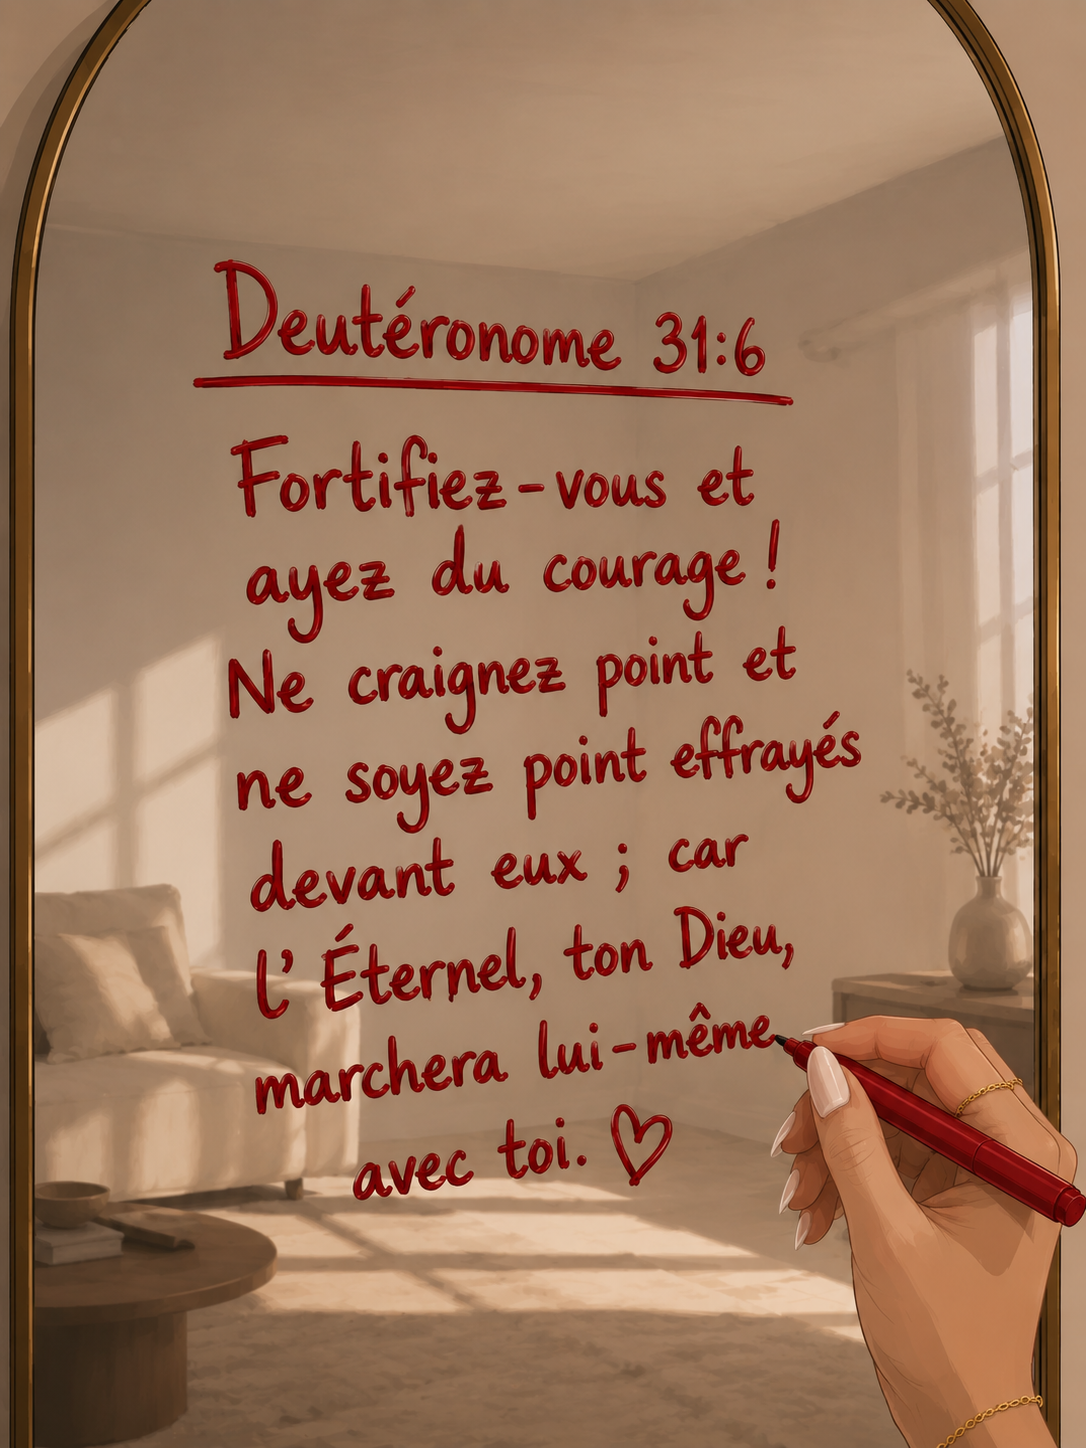 Deutéronome 31:6
Fortifiez-vous et
ayez du courage !
Ne craignez point et
ne soyez point effrayés
devant eux ; car
l'Éternel, ton Dieu,
marchera lui-même
avec toi. ♡